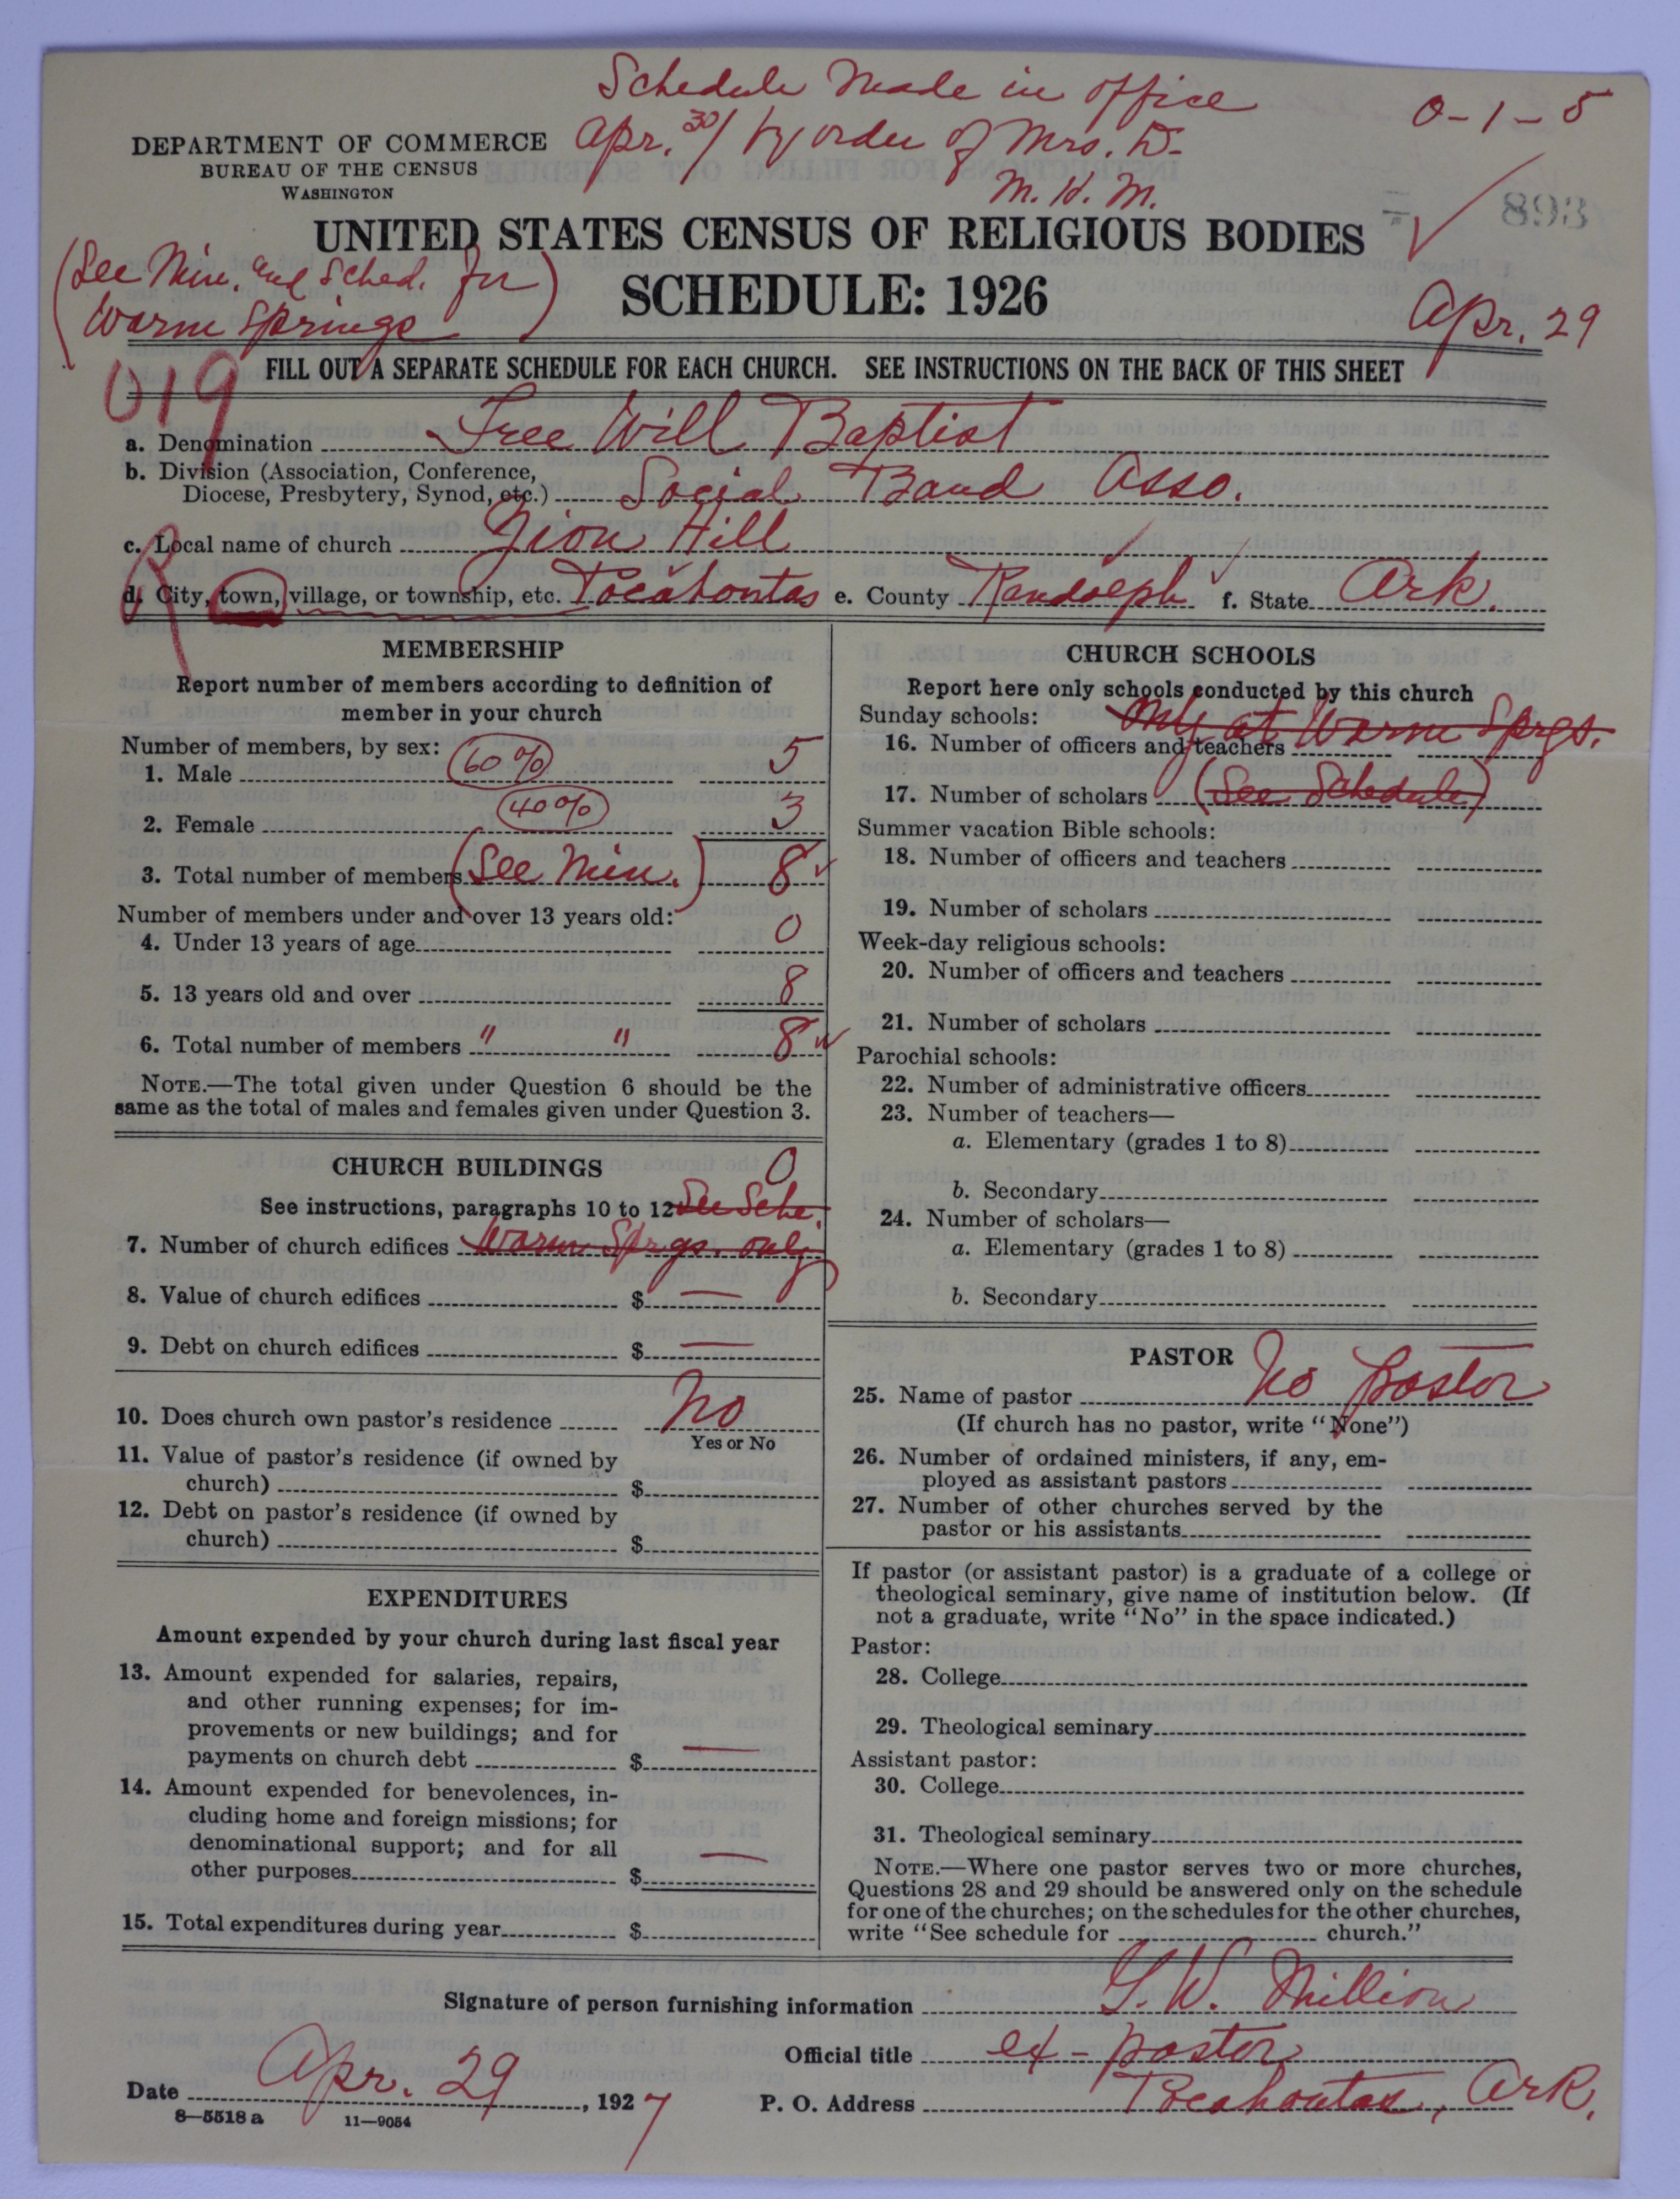 Schedule Made in office
0-1-5
DEPARTMENT OF COMMERCE
Apr. 30/ by order of Mrs. D.
BUREAU OF THE CENSUS
WASHINGTON
M. H. M.
893
UNITED STATES CENSUS OF RELIGIOUS BODIES
(See Min. and Sched. for
Warm Springs)
SCHEDULE: 1926
Apr. 29
019
FILL OUT A SEPARATE SCHEDULE FOR EACH CHURCH. SEE INSTRUCTIONS ON THE BACK OF THIS SHEET
a. Denomination Free Will Baptist
b. Division (Association, Conference,
Diocese, Presbytery, Synod, etc.) Social Band Asso.
c. Local name of church Zion Hill
R
d. City, town, village, or township, etc. Pocahontas e. County Randolph f. State Ark.
MEMBERSHIP
Report number of members according to definition of
member in your church
Number of members, by sex:
1. Male 60% 5
2. Female 40% 3
3. Total number of members (See Min.) 8
Number of members under and over 13 years old:
4. Under 13 years of age 0
5. 13 years old and over 8
6. Total number of members " " 8
NOTE.—The total given under Question 6 should be the
same as the total of males and females given under Question 3.
CHURCH BUILDINGS 0
See instructions, paragraphs 10 to 12 See Sche.
7. Number of church edifices Warm Sprgs. only
8. Value of church edifices $ —
9. Debt on church edifices $ —
10. Does church own pastor's residence No
Yes or No
11. Value of pastor's residence (if owned by
church) $
12. Debt on pastor's residence (if owned by
church) $
EXPENDITURES
Amount expended by your church during last fiscal year
13. Amount expended for salaries, repairs,
and other running expenses; for im-
provements or new buildings; and for
payments on church debt $ —
14. Amount expended for benevolences, in-
cluding home and foreign missions; for
denominational support; and for all
other purposes $ —
15. Total expenditures during year $
CHURCH SCHOOLS
Report here only schools conducted by this church
Sunday schools: Only at Warm Sprgs.
16. Number of officers and teachers
17. Number of scholars (See Schedule)
Summer vacation Bible schools:
18. Number of officers and teachers
19. Number of scholars
Week-day religious schools:
20. Number of officers and teachers
21. Number of scholars
Parochial schools:
22. Number of administrative officers
23. Number of teachers—
a. Elementary (grades 1 to 8)
b. Secondary
24. Number of scholars—
a. Elementary (grades 1 to 8)
b. Secondary
PASTOR
25. Name of pastor No pastor
(If church has no pastor, write "None")
26. Number of ordained ministers, if any, em-
ployed as assistant pastors
27. Number of other churches served by the
pastor or his assistants
If pastor (or assistant pastor) is a graduate of a college or
theological seminary, give name of institution below. (If
not a graduate, write "No" in the space indicated.)
Pastor:
28. College
29. Theological seminary
Assistant pastor:
30. College
31. Theological seminary
NOTE.—Where one pastor serves two or more churches,
Questions 28 and 29 should be answered only on the schedule
for one of the churches; on the schedules for the other churches,
write "See schedule for church."
Signature of person furnishing information G. W. Million
Official title ex-pastor
Date Apr. 29, 1927
P. O. Address Pocahontas, Ark.
8—5518 a 11—9054